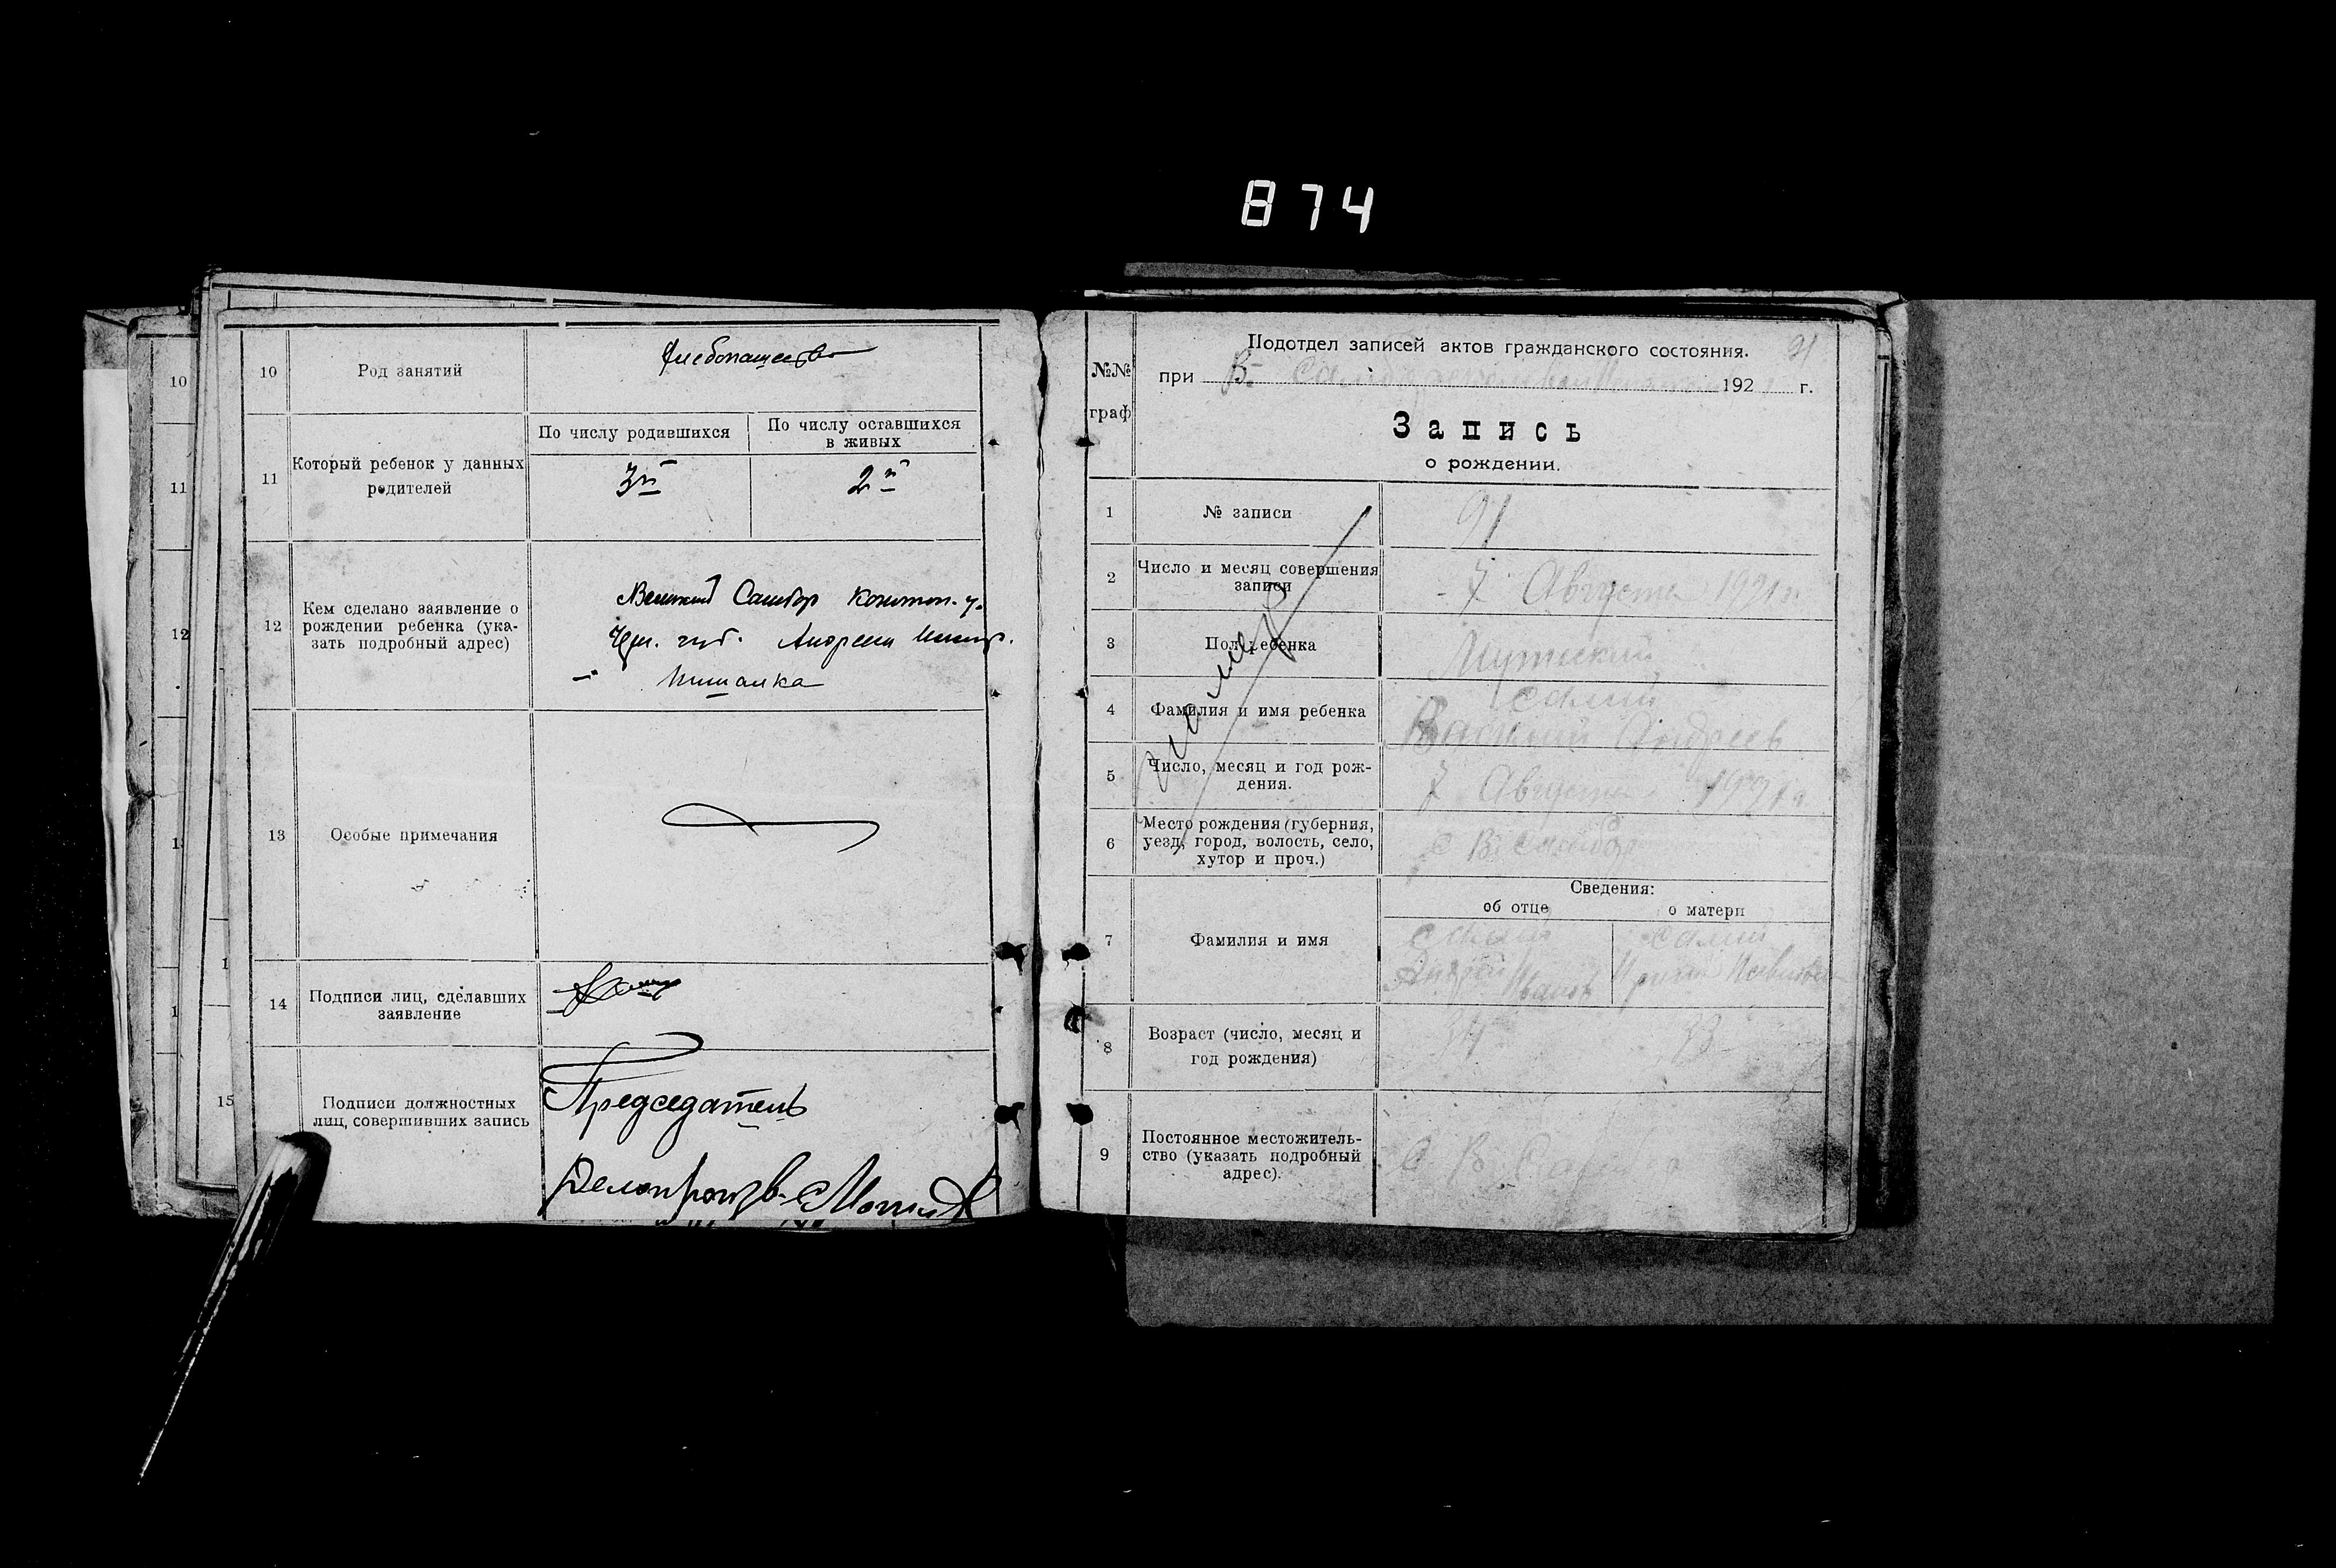 874
10
11
12
1
15
10
Род занятий
Хлебопашество
11
Который ребенок у данных
родителей
По числу родившихся
По числу оставшихся
в живых
3й
2й
12
Кем сделано заявление о
рождении ребенка (ука-
зать подробный адрес)
Великий Самбор Конотоп. у.
Чер. губ. Андреем
13
Особые примечания
14
Подписи лиц, сделавших
заявление
Подписи должностных
лиц, совершивших запись
Председатель
Делопроизв.
№№
граф
Подотдел записей актов гражданского состояния.
91
при В. 192 г.
Запись
о рождении.
1
№ записи
91
2
Число и месяц совершения
записи
7 Августа 1921 г.
3
Пол ребенка
Мужеский
4
Фамилия и имя ребенка
Салий
Василий Андреев
5
Число, месяц и год рож-
дения.
7 Августа 1921 г
6
Место рождения (губерния,
уезд, город, волость, село,
хутор и проч.)
с В. Самбор
Сведения:
об отце
о матери
7
Фамилия и имя
Салий
Андрей Иванов
Салий
8
Возраст (число, месяц и
год рождения)
34
33
9
Постоянное местожитель-
ство (указать подробный
адрес).
С. В. Самбор